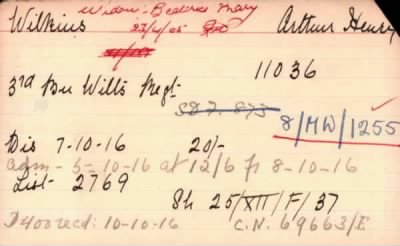 Widow: Beatrice Mary
Wilkins 23/4/05 Arthur Henry
11036
3rd Bn Wilts Regt
SD7. 873
8/MW/1255
Dis 7-10-16 20/-
adm - 5-10-16 at 12/6 fr 8-10-16
List 2769
Sh 25/XII/F/37
D400 recd: 10-10-16 C.N. 69663/E